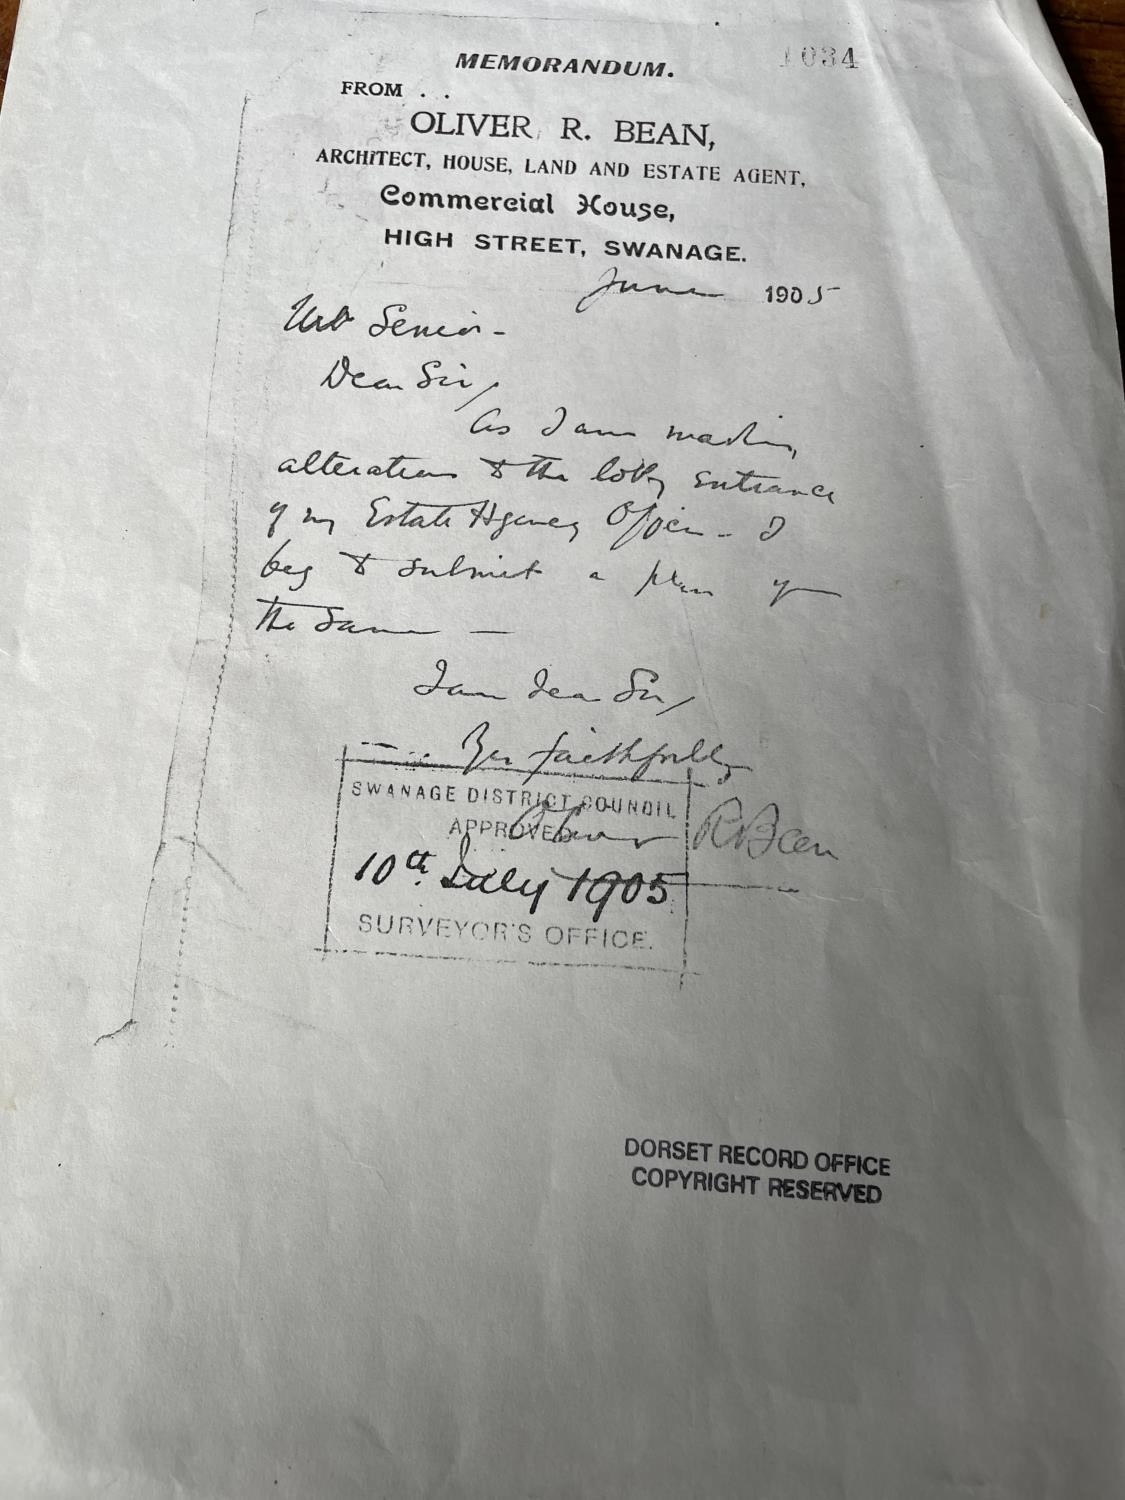 1034
MEMORANDUM.
FROM . .
OLIVER R. BEAN,
ARCHITECT, HOUSE, LAND AND ESTATE AGENT,
Commercial House,
HIGH STREET, SWANAGE.
June 1905
Senior -
Dear Sir,
As I am making
alterations to the lobby entrance
of my Estate Agency Office - I
beg to submit a plan of
the same —
I am dear Sir,
Yrs faithfully
Oliver R Bean
SWANAGE DISTRICT COUNCIL
APPROVED
10th July 1905
SURVEYOR'S OFFICE.
DORSET RECORD OFFICE
COPYRIGHT RESERVED